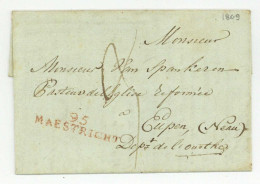 1809
Monsieur
Monsieur Van Spankeren
Pasteur de l'Eglise reformée
à
Eupen, (Neau)
Depᵗ. de l'ourthe
95
MAESTRICHT